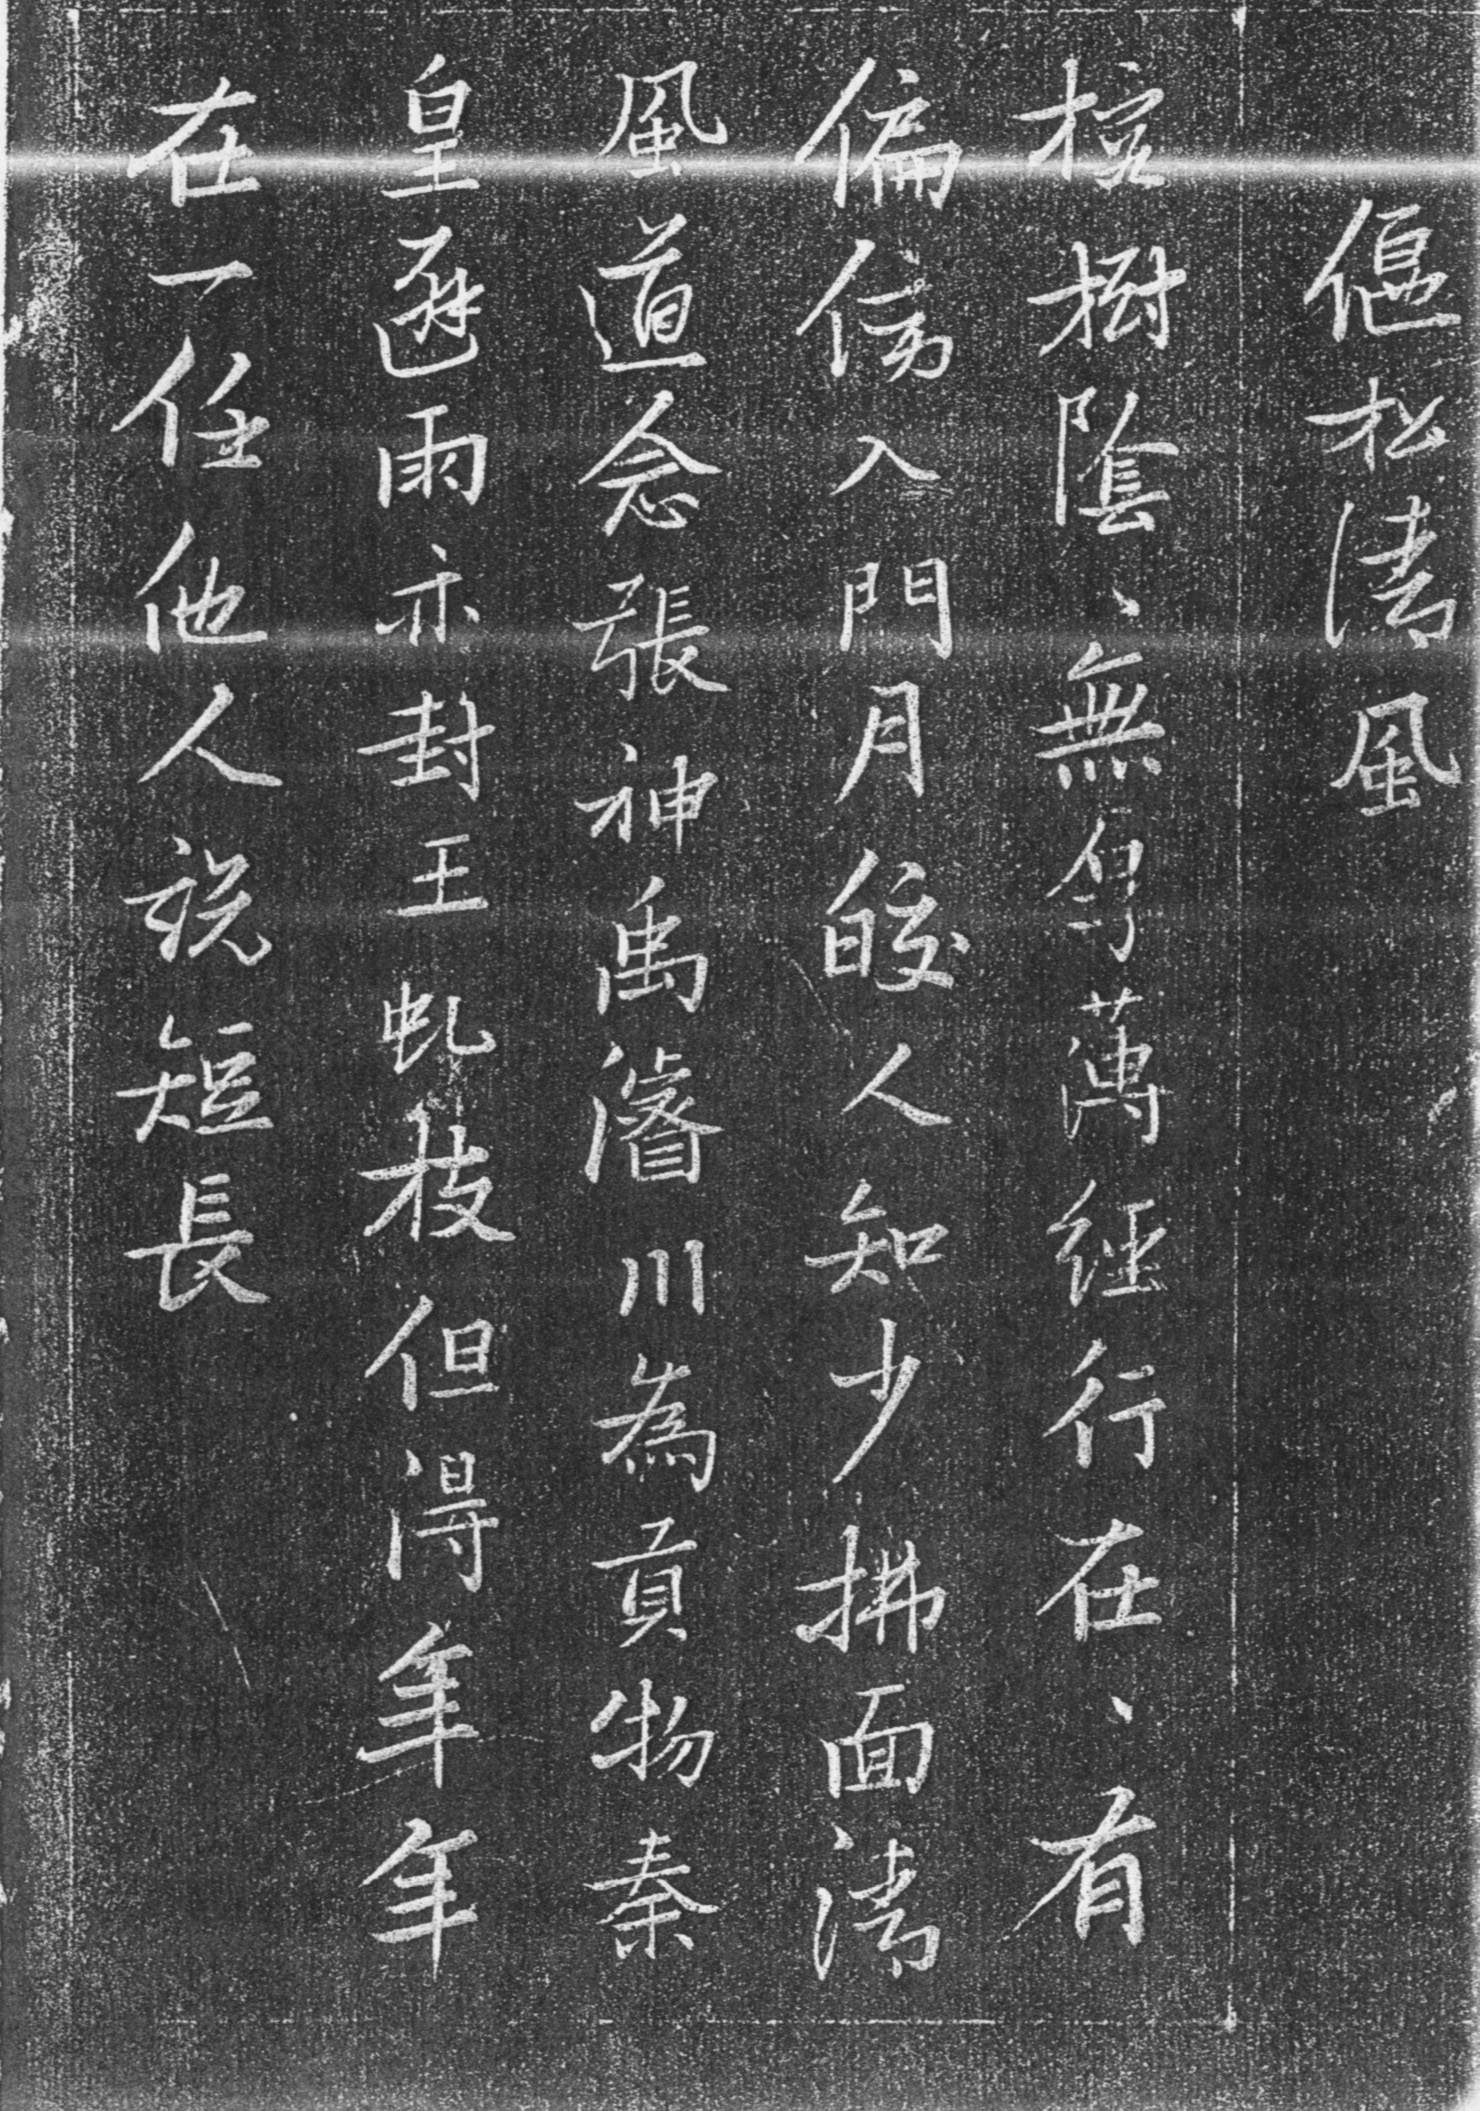 偃松清風
樹陰、無萬經行在、有
偏傍入門月皎人知少拂面清
風道念張神禹濬川為貢物秦
皇避雨亦封王虬枝但得年年
在一任他人說短長